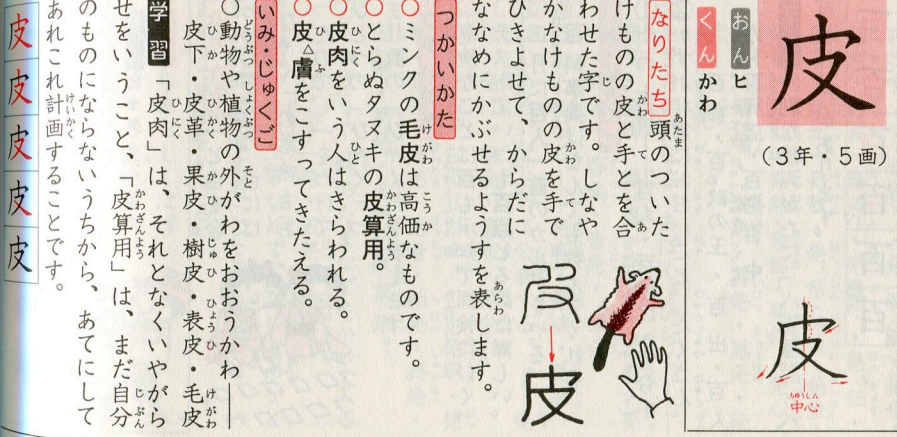 皮
(3年・5画)
おん ヒ
くん かわ
中心
なりたち 頭のついた
けものの皮と手とを合
わせた字です。しなや
かなけものの皮を手で
ひきよせて、からだに
ななめにかぶせるようすを表します。
皮
つかいかた
○ミンクの毛皮は高価なものです。
○とらぬタヌキの皮算用。
○皮肉をいう人はきらわれる。
○皮△膚をこすってきたえる。
いみ・じゅくご
○動物や植物の外がわをおおうかわ―
皮下・皮革・果皮・樹皮・表皮・毛皮
学習 「皮肉」は、それとなくいやがら
せをいうこと、「皮算用」は、まだ自分
のものにならないうちから、あてにして
あれこれ計画することです。
皮皮皮皮皮